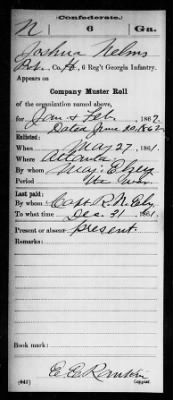 (Confederate.)
N 6 Ga.
Joshua Nelms
Pvt., Co. H, 6 Reg't Georgia Infantry.
Appears on
Company Muster Roll
of the organization named above,
for Jan & Feb, 1862.
Dated June 20, 1862
Enlisted:
When May 27, 1861.
Where Atlanta
By whom Maj.
Period the War
Last paid:
By whom Capt. R. N. Ely
To what time Dec. 31, 1861.
Present or absent Present
Remarks:
Book mark:
E. E. Rankin
(642) Copyist.